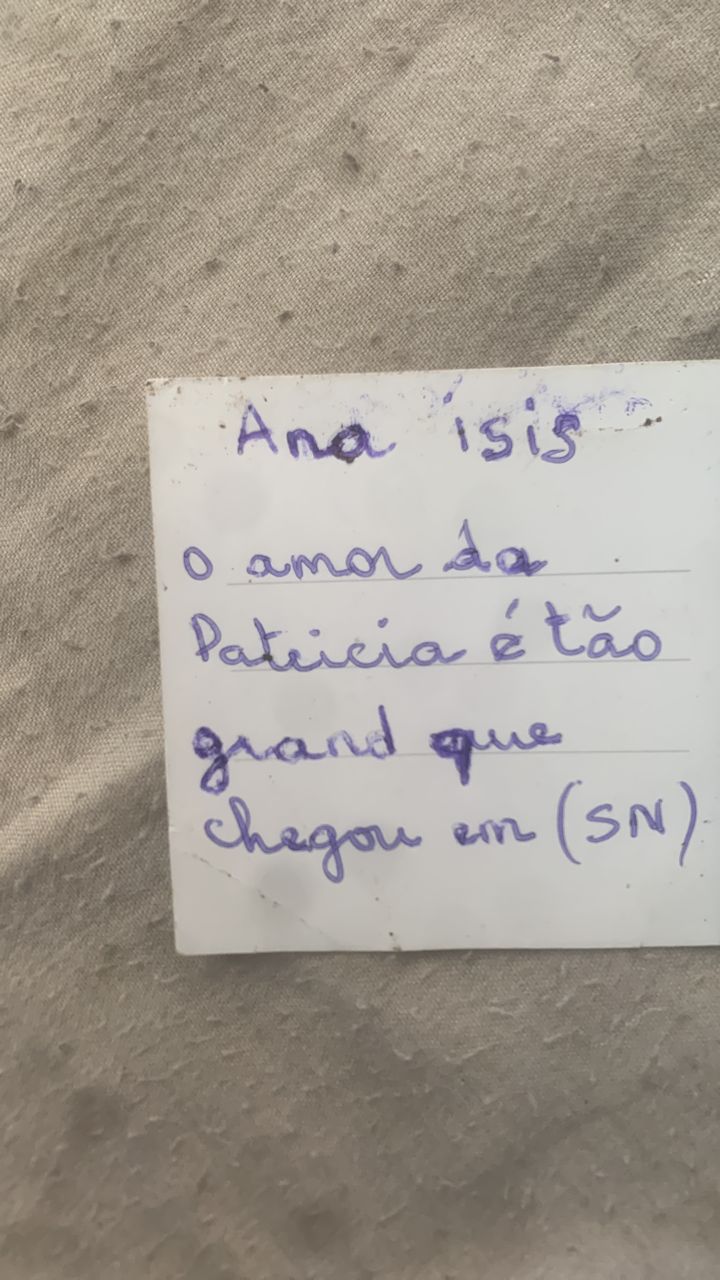 Ana ísis
o amor da
Patricia é tão
grand que
chegou em (SN)